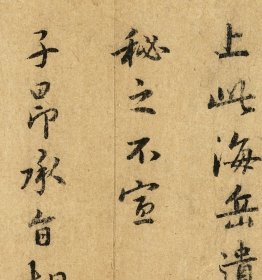 上此海岳遺
秘之不宣
子昂承旨